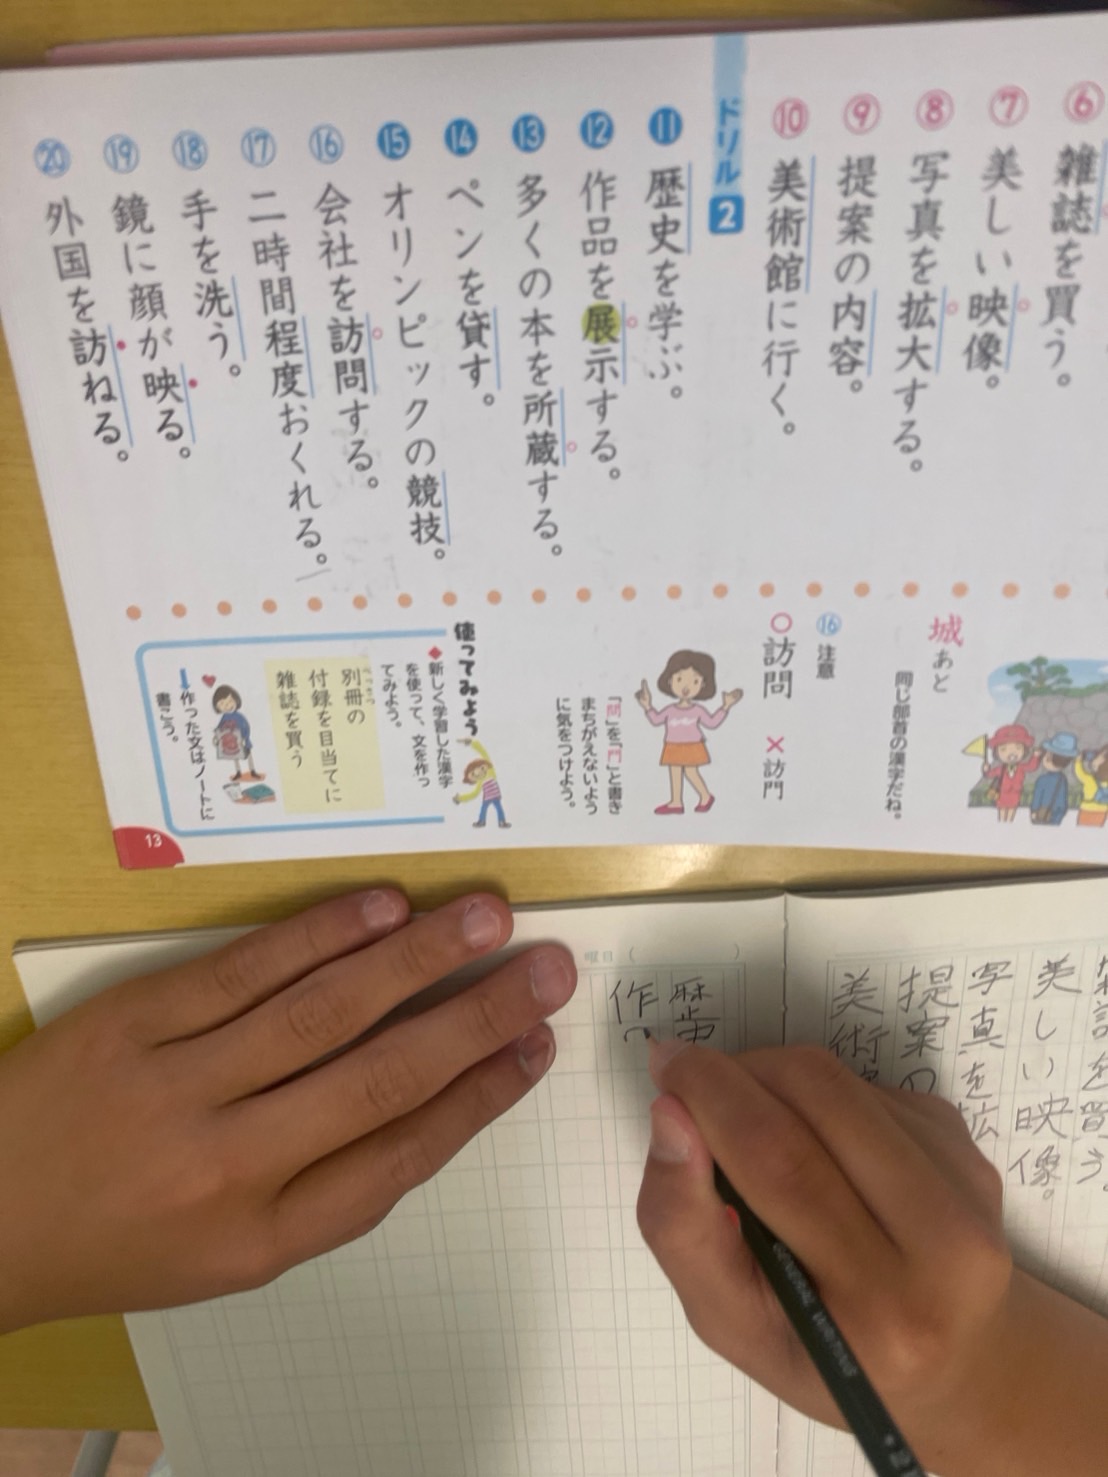 ⑥ 雑誌を買う。
⑦ 美しい映像。
⑧ 写真を拡大する。
⑨ 提案の内容。
⑩ 美術館に行く。
ドリル 2
⑪ 歴史を学ぶ。
⑫ 作品を展示する。
⑬ 多くの本を所蔵する。
⑭ ペンを貸す。
⑮ オリンピックの競技。
⑯ 会社を訪問する。
⑰ 二時間程度おくれる。
⑱ 手を洗う。
⑲ 鏡に顔が映る。
⑳ 外国を訪ねる。
城あと
同じ部首の漢字だね。
⑯ 注意
○訪問 ×訪門
「問」を「門」と書き
まちがえないよう
に気をつけよう。
使ってみよう
◆新しく学習した漢字
を使って、文を作っ
てみよう。
別冊の
べっさつ
付録を目当てに
雑誌を買う
作った文はノートに
書こう。
13
雑誌を買う。
美しい映像。
写真を拡
提案の
美術
曜日 ( )
歴史
作